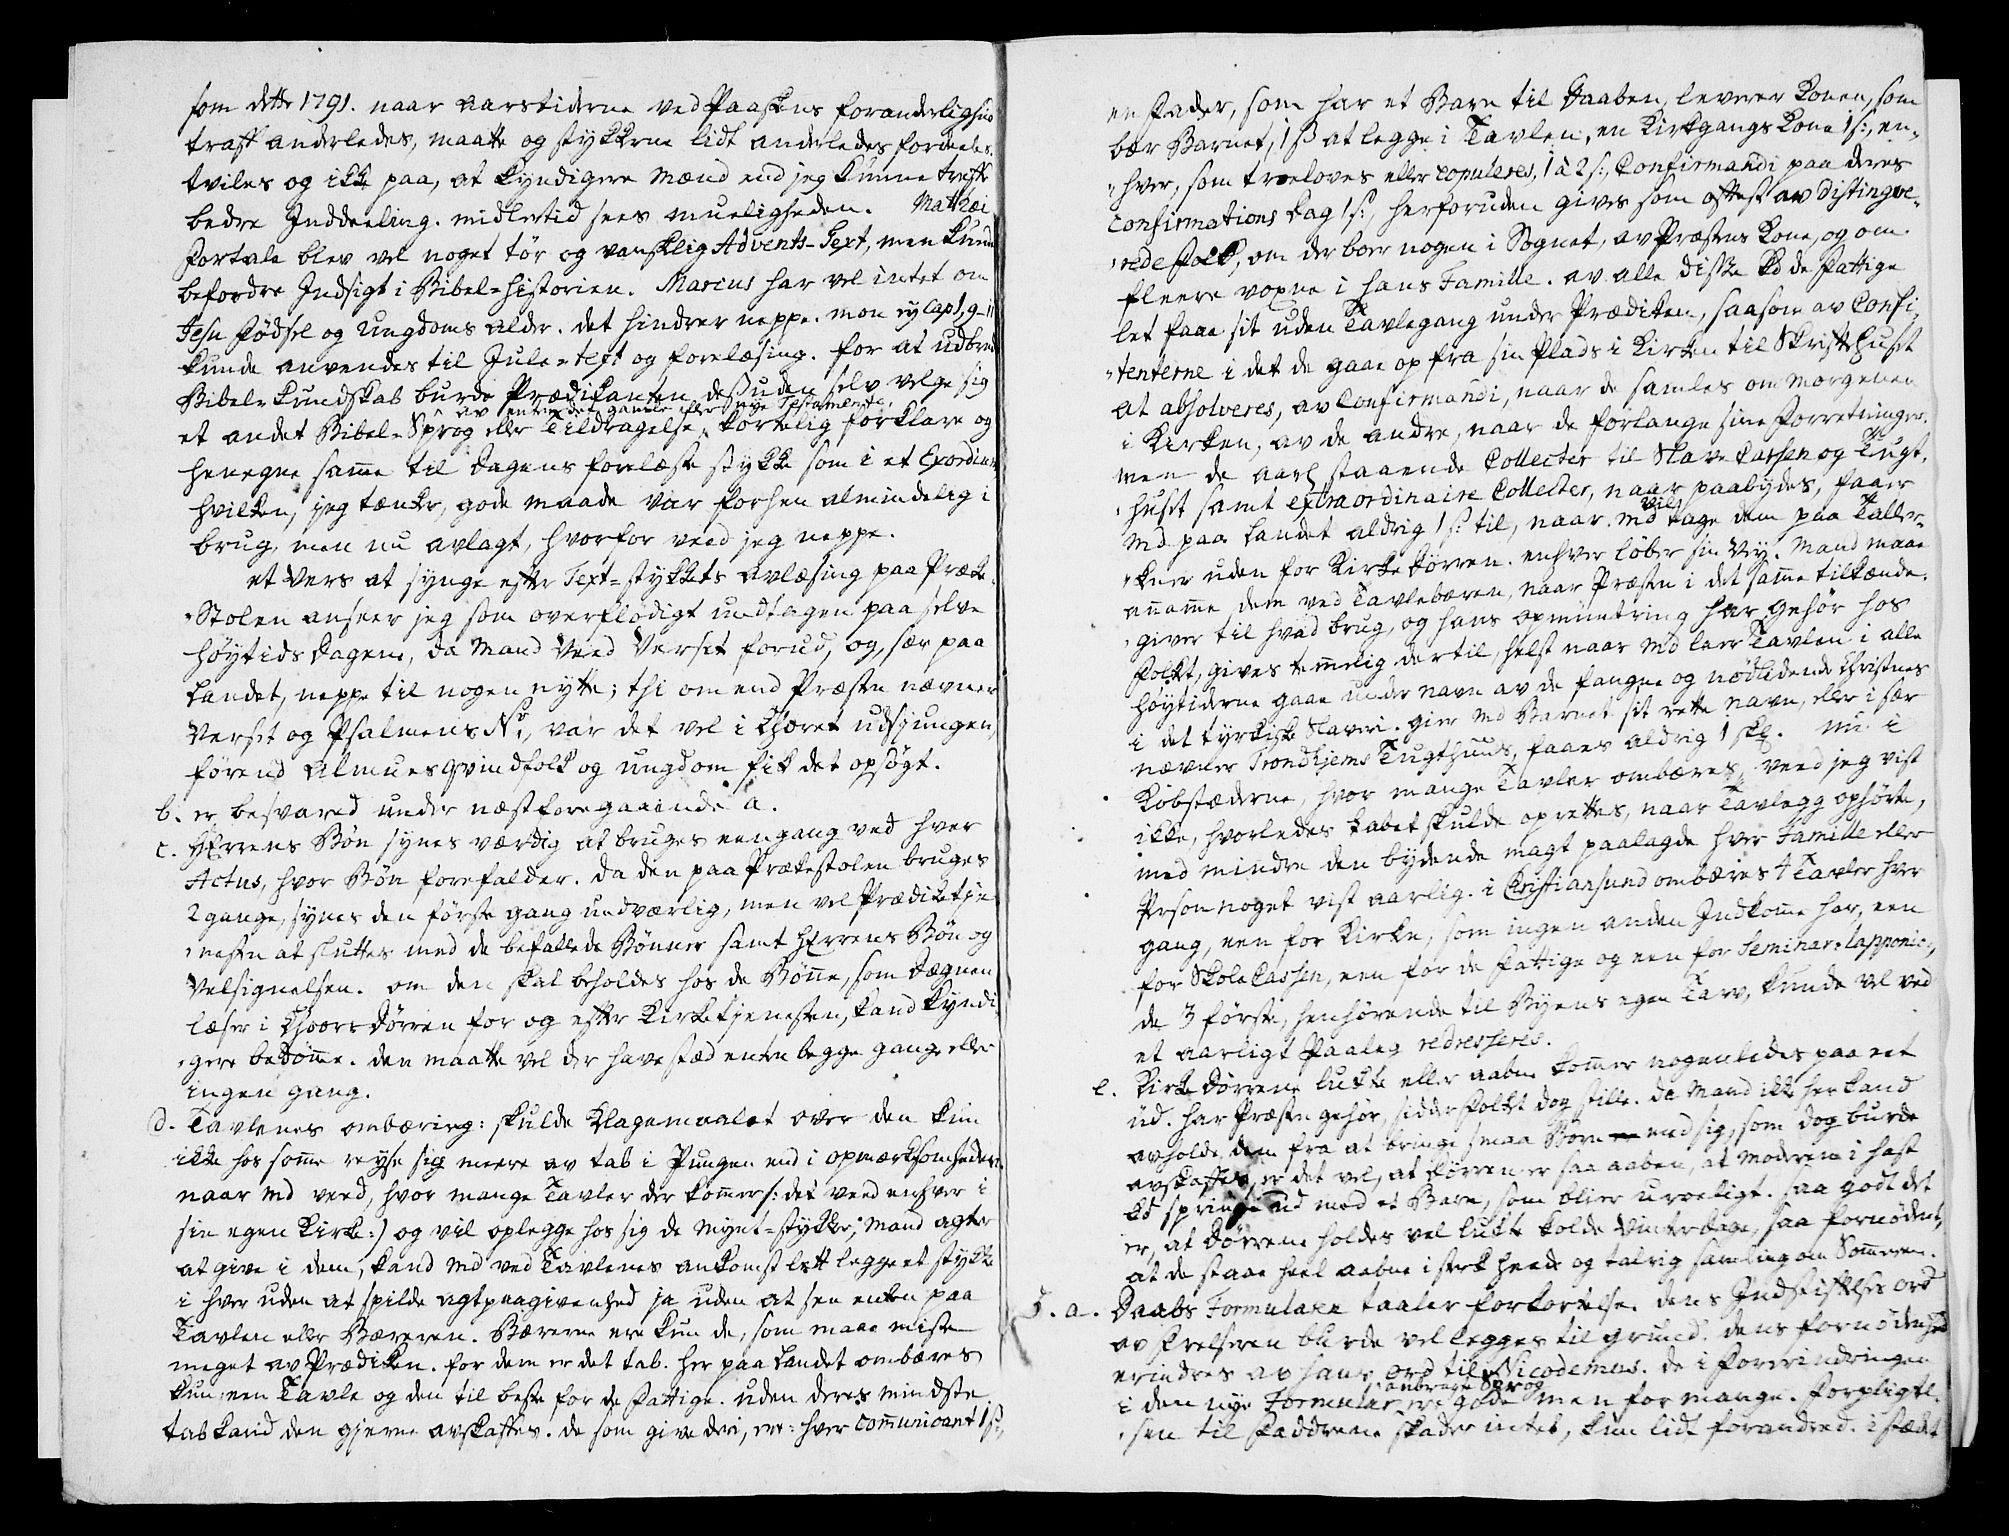 som dette 1791. naar aarstiderne ved Paaskens foranderlighed
traff anderledes, maatte og stykkerne lidt anderledes fordeeles.
tviles og ikke paa, at kyndigere Mænd end jeg kunne treffe
bedre Inddeeling. midlertid sees mueligheden. Matthæi
Fortale blev vel noget tör og vanskelig Advents-Text, men kunde
befordre Indsigt i Bibel-historien. Marcus har vel intet om
Jesu födsel og Ungdoms alder. det hindrer neppe. mon ej Cap 1, 9-11
kunde anvendes til Jule-text og forelæsing. for at udbrede
Bibel-kundskab burde Prædikanten desuden selv velge sig
av enten det gamle eller nye Testamente,
et andet Bibel-Sprog eller Tildragelse, kortelig forklare og
henegne samme til dagens forelæste stykke som i et Exordium
hvilken, jeg tænker, gode maade var forhen almindelig i
brug, men nu avlagt, hvorfor veed jeg neppe.
et Vers at synge efter Text-stykkets avlæsing paa Præke-
Stolen anseer jeg som overflödigt undtagen paa selve
höytids dagene, da Mand veed Verset forud, og, sær paa
Landet, neppe til nogen nytte; thi om end Præsten nævner
Verset og Psalmens No, var det vel i Choret udsjungen,
förend Almues Qvindfolk og ungdom fik det opsögt.
b. er besvared under næstforegaaende a.
c. HErrens Bön synes værdig at bruges eengang ved hver
Actus, hvor Bön forefalder. da den paa Prækestolen bruges
2 gange, synes den förste gang undværlig, men vel Prædiketje-
nesten at sluttes med de befallede Bönner samt HErrens Bön og
Velsignelsen. om den skal beholdes hos de Bönne, som Degnen
læser i Choors dörren for og efter Kirketjenesten, kand kyndi-
gere bedömme. den maatte vel der have stæd enten begge gange eller
ingen gang.
d. Tavlenes ombæring: skulde Klagemaalet over den kun
ikke hos somme reyse sig meere av tab i Pungen end i opmærksomheden
naar Md veed, hvor mange Tavler der kommer /: det veed enhver i
sin egen Kirke:) og vil oplegge hos sig de Mynt-stykker, Mand agter
at give i dem, kand Md ved Tavlenes ankomst lett legge et stykke
i hver uden at spilde agtpaagivenhed ja uden at see enten paa
Tavlen eller Bæreren. Bærerne ere kun de, som maae miste
meget av Prædiken. for dem er det tab. her paa Landet ombæres
kun een Tavle og den til beste for de Fattige. uden deres mindste
tab kand den gjerne avskaffes. de som give deri, ere: hver communicant 1 s:,
en Fader, som har et Barn til Daaben, leverer Konen, som
bær Barnet, 1 s: at legge i Tavlen, en Kirkgangs Kone 1 s:, en-
hver, som troeloves eller copuleres, 1 à 2 s:, Confirmandi paa deres
Confirmations dag 1 s:, herforuden gives som oftest av distingve-
rede Folk, om der boer nogen i Sognet, av Præstens Kone, og om
fleere voxne i hans Famille. av alle disse kd de Fattige
let faae sit uden Tavlegang under Prædiken, saasom av Confi-
tenterne i det de gaae op fra sin Plads i Kirken til Skriftehuset
at absolveres, av Confirmandi, naar de samles om Morgenen
i Kirken, av de andre, naar de forlange sine Forretninger.
men de aarl staaende Collecter til Slave Cassen og Tugt-
huset samt extraordinaire Collecter, naar paabydes, faaer
vil
Md paa Landet aldrig 1 s: til, naar Md tage dem paa Taller-
kner uden for Kirke dörren. enhver löber sin Vey. Mand maae
anamme dem ved Tavlebæren, naar Præsten i det samme tilkænde-
giver til hvad brug, og hans opmuntring har gehör hos
Folket, gives temmelig dertil, helst naar Md laer Tavlen i alle
höytiderne gaae under navn av de fangne og nödlidende Christnes
i det tyrkiske Slaveri. gier Md Barnet sit rette navn, eller i sær
nævner Trondhjems Tugthuus, faaes aldrig 1 sk. nu i
Köbstæderne, hvor mange Tavler ombæres, veed jeg vist
ikke, hvorledes tabet skulde oprettes, naar Tavlegg ophörte,
med mindre den bydende magt paalagde hver Famille eller
Person noget vist aarlig. i Christiansund ombæres 4 Tavler hver
gang, een for Kirke, som ingen anden Indkomme har, een
for Skole Cassen, een for de Fattige og een for Seminar: lapponic:,
de 3 förste, henhörende til Byens egen Tarv, kunde vel ved
et aarligt Paaleg redresseres.
e. Kirke dörrene lukte eller aabne kommer nogenledes paa eet
ud. har Præsten gehör, sidder folket dog stille. da Mand ikke her kand
avholde dem fra at bringe smaa Börn med sig, som dog burde
avskaffes, er det vel, at dörren er saa aaben, at Moderen i hast
kd springe ud med et Barn, som blier uroeligt. saa godt det
er, at Dörrene holdes vel lukte kolde Vinterdage, saa fornödent,
at de staae heel aabne i sterk heede og talrig samling om Sommeren.
5. a. Daabs Formularen taaler forkortelse. dens Indstiftelses ord
av Frelseren burde vel legges til grund. dens fornödenhed
erindres av hans ord til Nicodemus. de i Forerindringen
anbragte Sprog
i den nye Formular ere gode men for mange. Forpligtel-
sen til Fadderne skader intet, kun lidt forandred. i stædet